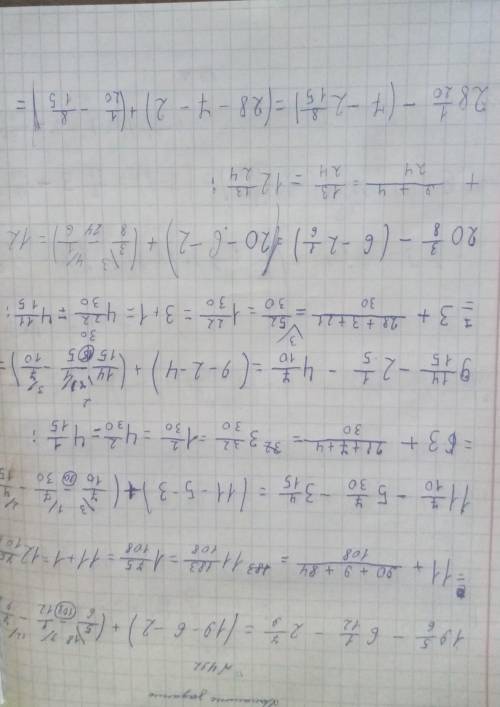 Домашнее задание
№432
19 5/6 - 6 1/12 - 2 7/9 = (19 - 6 - 2) + (5/6 - 1/12 - 7/9
= 11 + (90 + 9 + 84)/108 = 11 183/108 = 1 75/108 = 11 + 1 = 12 75/108
11 7/10 - 5 7/30 - 3 4/15 = (11 - 5 - 3) + (7/10 - 7/30 - 4/15
= 3 + (21 + 7 + 4)/30 = 3 32/30 = 1 2/30 = 4 2/30 = 4 1/15;
9 14/15 - 2 1/5 - 4 7/10 = (9 - 2 - 4) + (14/15 - 1/5 - 7/10) =
= 3 + (28 + 3 + 21)/30 = 52/30 = 1 22/30 = 3 + 1 = 4 22/30 = 4 11/15;
20 3/8 - (6 - 2 1/6) = (20 - 6 - 2) + (3/8 - 1/6) = 12
+ (9 + 4)/24 = 13/24 = 12 13/24;
28 1/20 - (7 - 2 8/15) = (28 - 7 - 2) + (1/20 - 8/15) =